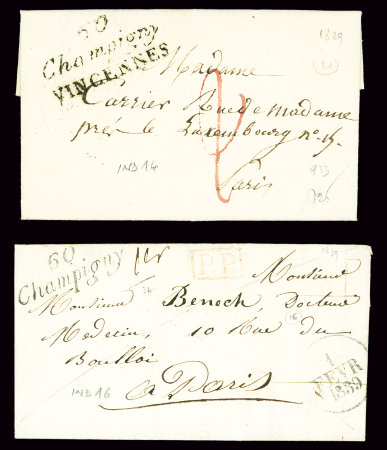 60
Champigny
VINCENNES
1829
Madame
Carrier Rue de madame
près le Luxembourg n° 15.
IND 14
Paris
60
Champigny
P.P.
Monsieur
Monsieur Benech Docteur
Medecin, 10 Rue du
Boulloi
16
IND 16
a Paris
1
FEVR
1839